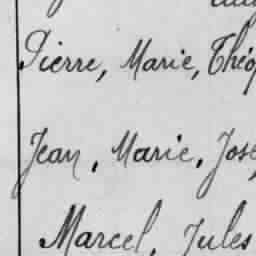 Pierre, Marie, Théo
Jean, Marie, Jose
Marcel, Jules